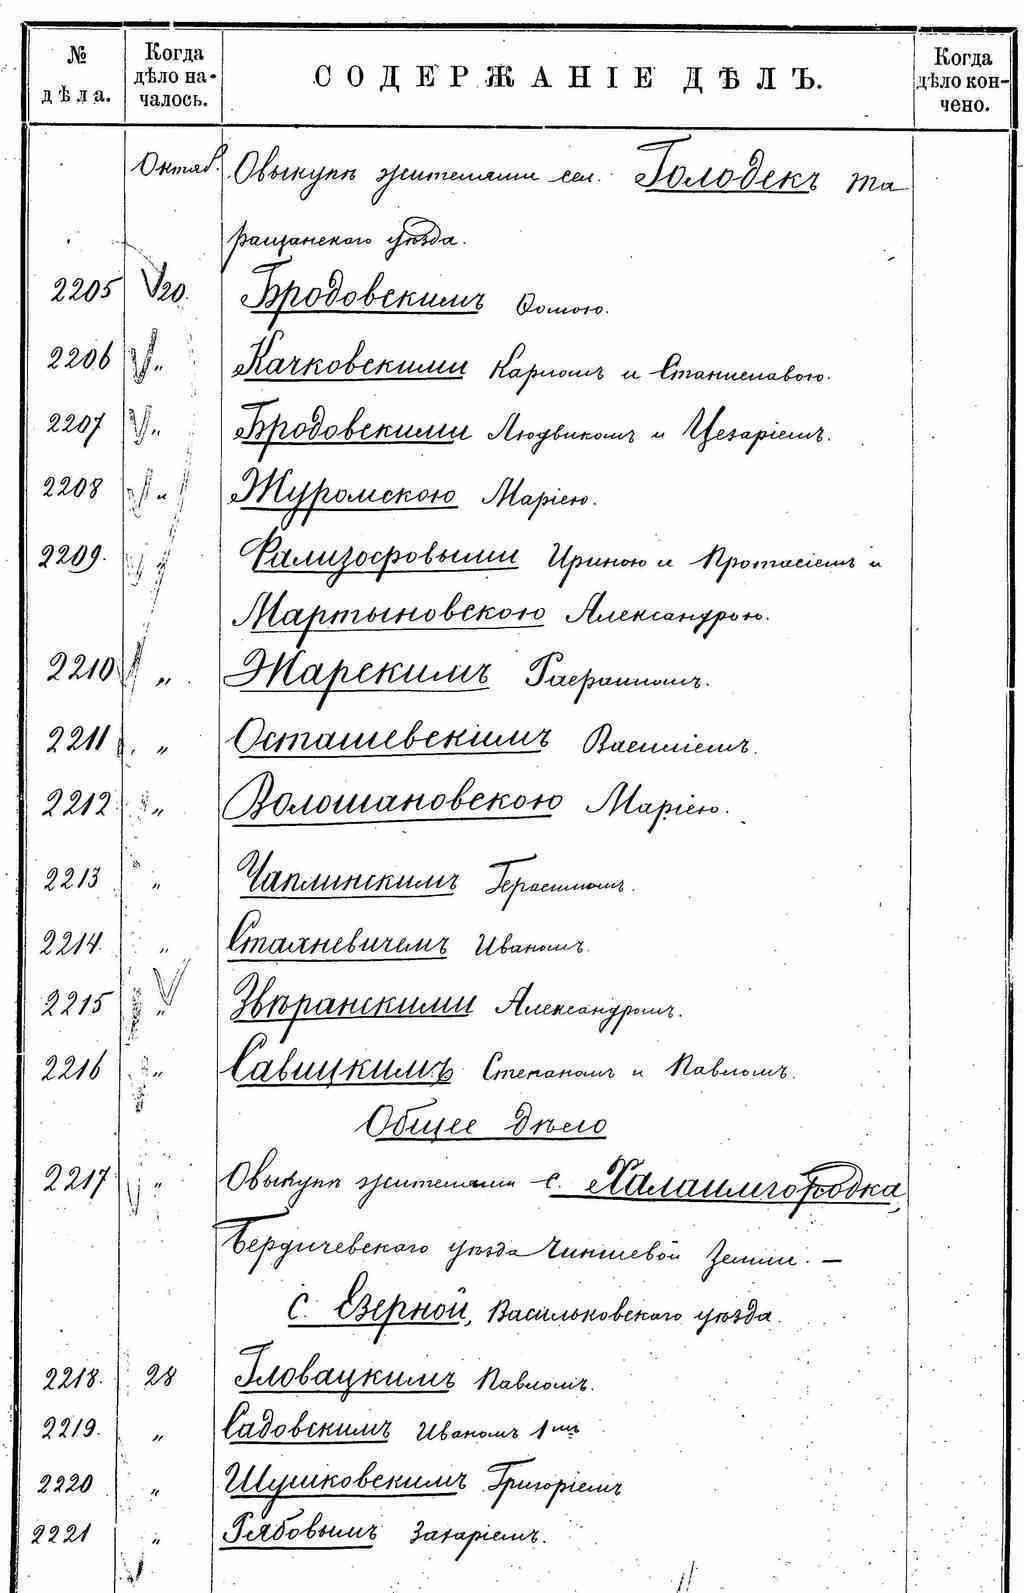 № дѣла. Когда дѣло началось. СОДЕРЖАНІЕ ДѢЛЪ. Когда дѣло кончено.
Октяб. О выкупѣ жителями сел. Голодекъ Та
ращанского уѣзда.
2205 20. Бродовскимъ Ѳомою.
2206 „ Качковскими Карломъ и Станиславою.
2207 „ Бродовскими Людвикомъ и Цезаріемъ.
2208 „ Журомскою Маріею.
2209. Фализофовыми Ириною и Протасіемъ и
Мартыновскою Александрою.
2210 „ Жарскимъ
2211 „ Осташевскімъ Василіемъ.
2212 „ Волошановскою Маріею.
2213 „ Чаплинскимъ Герасимомъ.
2214. „ Стахневичемъ Иваномъ.
2215 „ Звѣранскими Александромъ.
2216 „ Савицкимъ Степаномъ и Павломъ.
Общее дѣло
2217 „ О выкупѣ жителями с. Халаимгородка,
Бердичевского уѣзда чиншевой земли. —
с. Езерной, Васильковского уѣзда.
2218. 28 Гловацкимъ Павломъ.
2219. „ Садовскимъ Иваномъ 1мъ
2220 „ Шушковскимъ Григоріемъ
2221 „ Рябовымъ Захаріемъ.